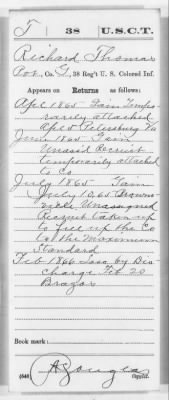 T 38 U.S.C.T.
Richard Thomas
Pvt., Co. G, 38 Reg't U. S. Colored Inf.
Appears on Returns as follows:
Apl 1865 Gain Tempo-
rarily attached
Apl 5 Petersburg Va
June 1865 Gain
Unasd Recruit
temporarily attached
to Co
July 1865 Gain
June 10, 65 Browns-
ville Unassigned
Recruit taken up
to fill up the Co
to the Maximum
Standard
Feb 1866 Loss by Dis-
charge Feb 20
Brazos
Book mark:
(546)
Copyist.